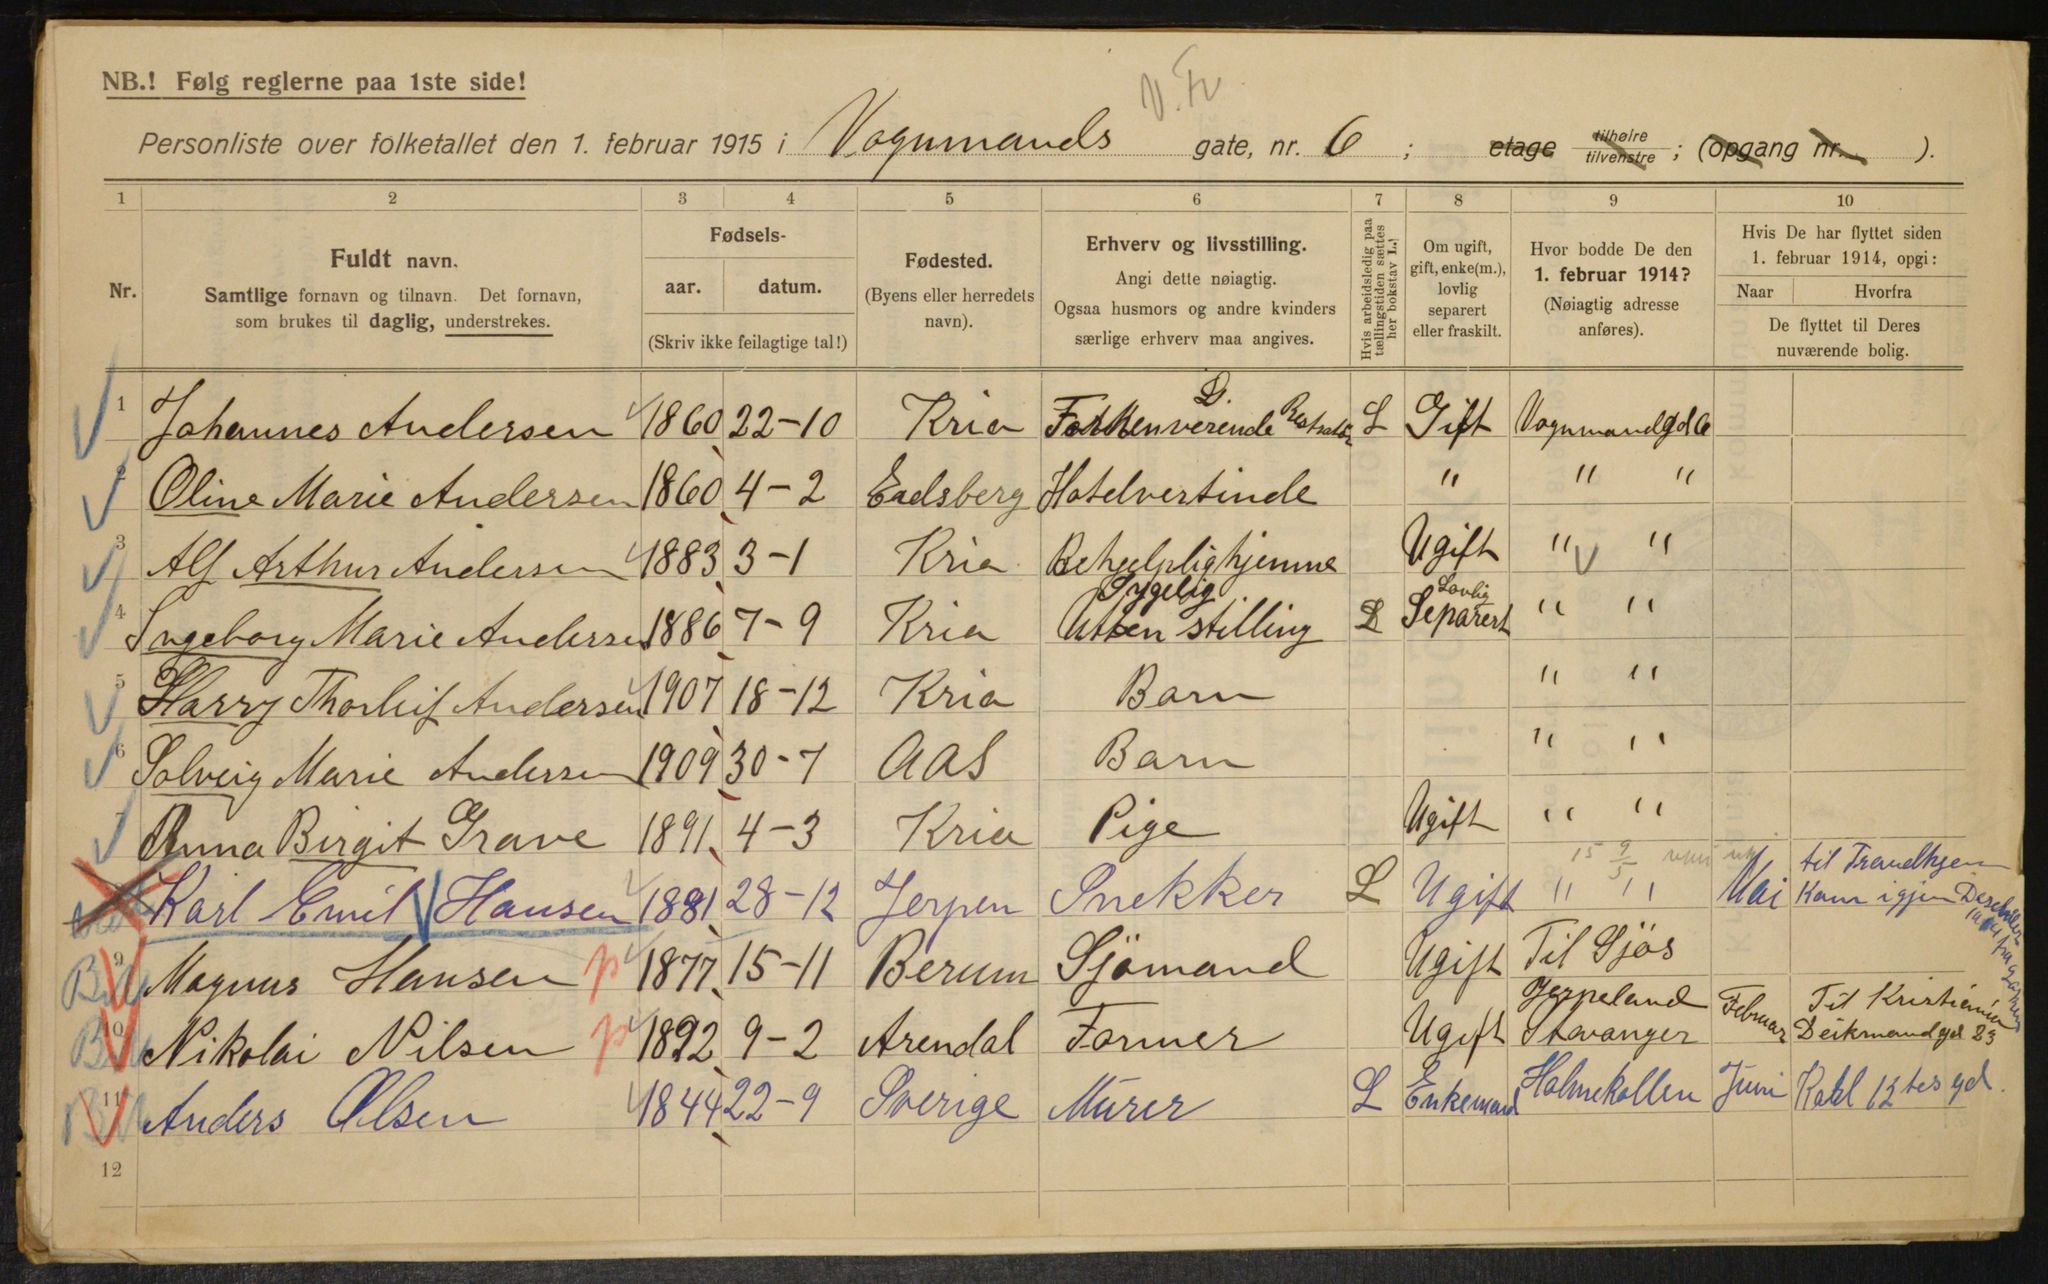 NB.! Følg reglerne paa 1ste side!
V. Fv.
Personliste over folketallet den 1. februar 1915 i Vognmands gate, nr. 6 ; etage tilhøire tilvenstre ; (opgang nr. ).
1 2 3 4 5 6 7 8 9 10
Nr.
Fuldt navn.
Samtlige fornavn og tilnavn. Det fornavn,
som brukes til daglig, understrekes.
Fødsels-
aar. datum.
(Skriv ikke feilagtige tal!)
Fødested.
(Byens eller herredets
navn).
Erhverv og livsstilling.
Angi dette nøiagtig.
Ogsaa husmors og andre kvinders
særlige erhverv maa angives.
Hvis arbeidsledig paa
tællingstiden sættes
her bokstav L.!
Om ugift,
gift, enke(m.),
lovlig
separert
eller fraskilt.
Hvor bodde De den
1. februar 1914?
(Nøiagtig adresse
anføres).
Hvis De har flyttet siden
1. februar 1914, opgi:
Naar Hvorfra
De flyttet til Deres
nuværende bolig.
1 Johannes Andersen 1860 22-10 Kria L Gift Vognmandgd 6
2 Oline Marie Andersen 1860 4-2 Eidsberg Hotelvertinde " " "
3 Alf Arthur Andersen 1883 3-1 Kria Behjelplig hjemme Ugift " "
Sygelig Lovlig
4 Ingeborg Marie Andersen 1886 7-9 Kria Utten stilling L Separert " "
5 Harry Thorleif Andersen 1907 18-12 Kria Barn " "
6 Solveig Marie Andersen 1909 30-7 AAS Barn " "
7 Anna Birgit Grave 1891 4-3 Kria Pige Ugift " "
til Trondhjem
Karl Emil Hansen 1881 28-12 Jerpen Snekker L Ugift " " Mai Kom igjen
9 Magnus Hansen p 1877 15-11 Berum Sjömand Ugift Til Sjös
Jørpeland Til Kristiania
10 Nikolai Nilsen p 1892 9-2 Arendal Former Ugift Stavanger Februar Deikmandgd 23
11 Anders Olsen 1844 22-9 Sverige Murer L Enkemand Holmekollen Juni 12tes gd.
12